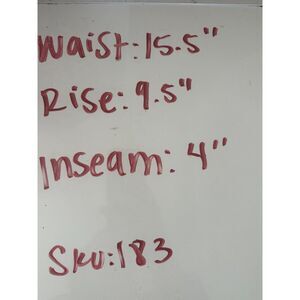 Waist: 15.5"
Rise: 9.5"
Inseam: 4"
Sku: 183